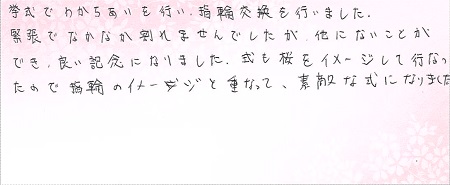 挙式でわかちあいを行い、指輪交換を行いました.
緊張でなかなか割れませんでしたが、他にないことが
でき、良い記念になりました。式も桜をイメージして行なっ
たので指輪のイメージと重なって、素敵な式になりました